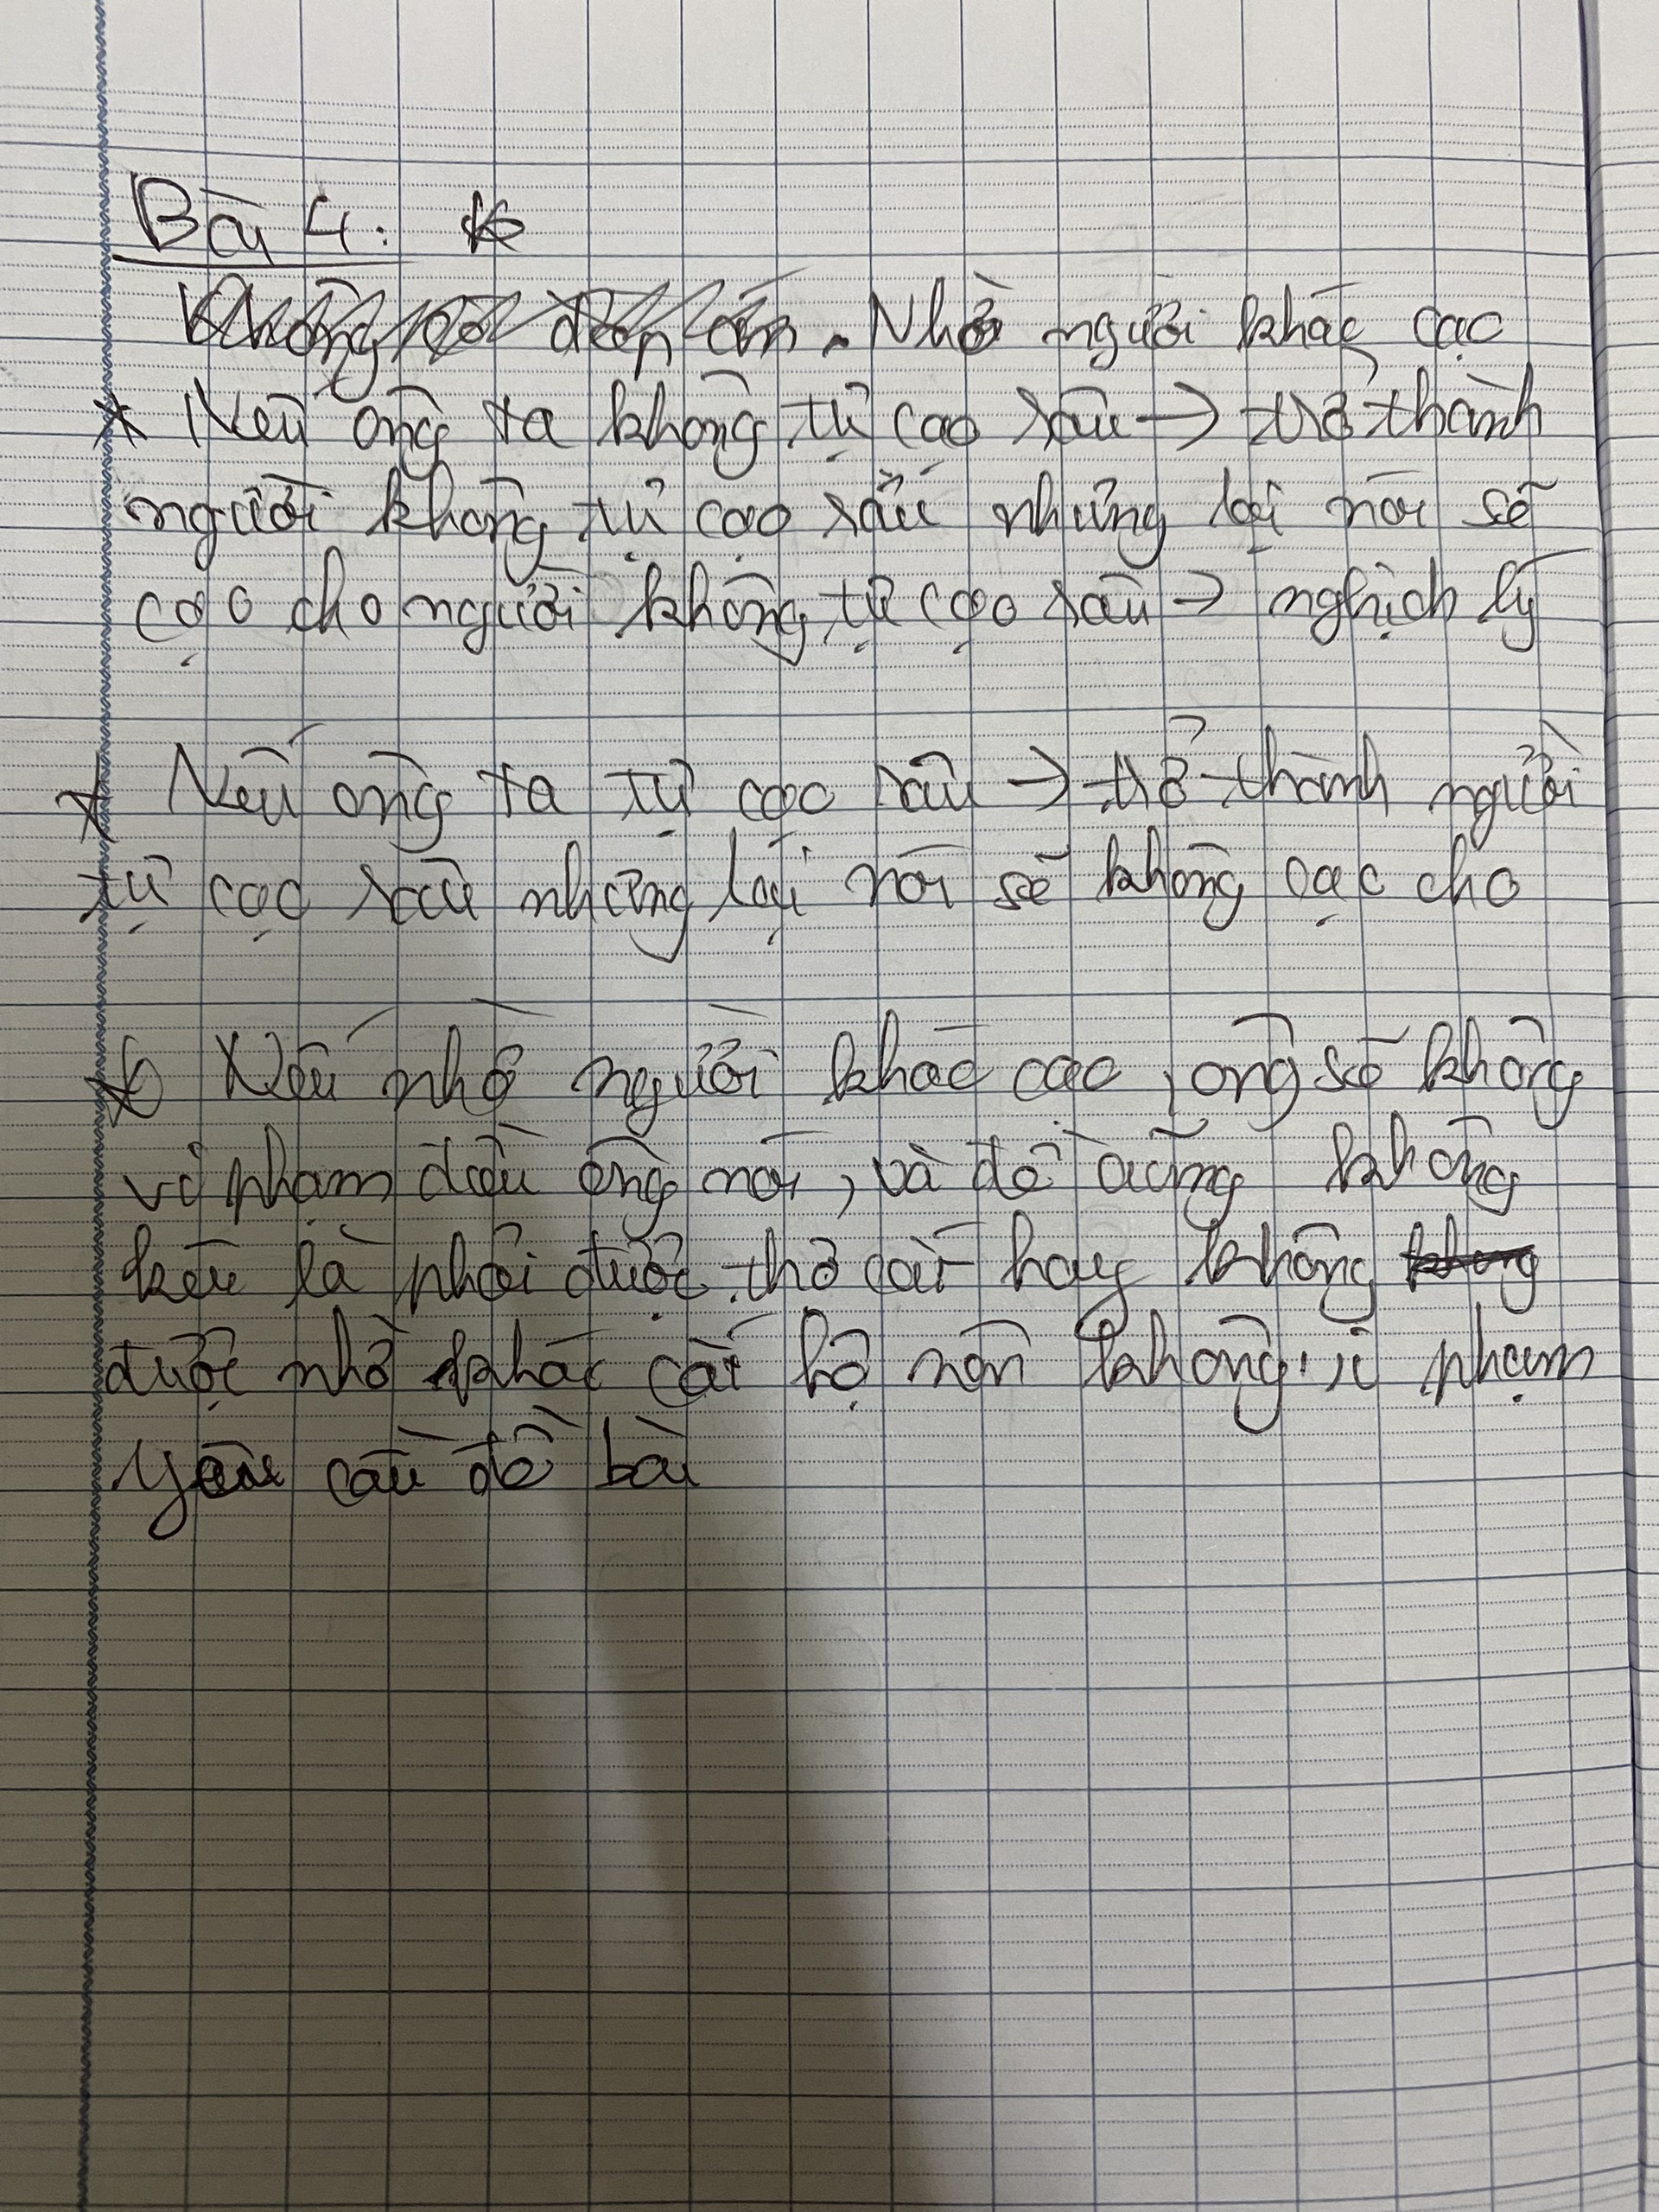 Bài 4:
Không có đáp án. Nhờ người khác cạo
* Nếu ông ta không tự cạo râu → trở thành
người không tự cạo râu nhưng lại nói sẽ
cạo cho người không tự cạo râu → nghịch lý
* Nếu ông ta tự cạo râu → trở thành người
tự cạo râu nhưng lại nói sẽ không cạo cho
* Nếu nhờ người khác cạo, ông sẽ không
vi phạm điều ông nói, và đề cũng không
kêu là phải được thợ cắt hay không không
được nhờ khác cắt hộ nên không vi phạm
yêu cầu đề bài